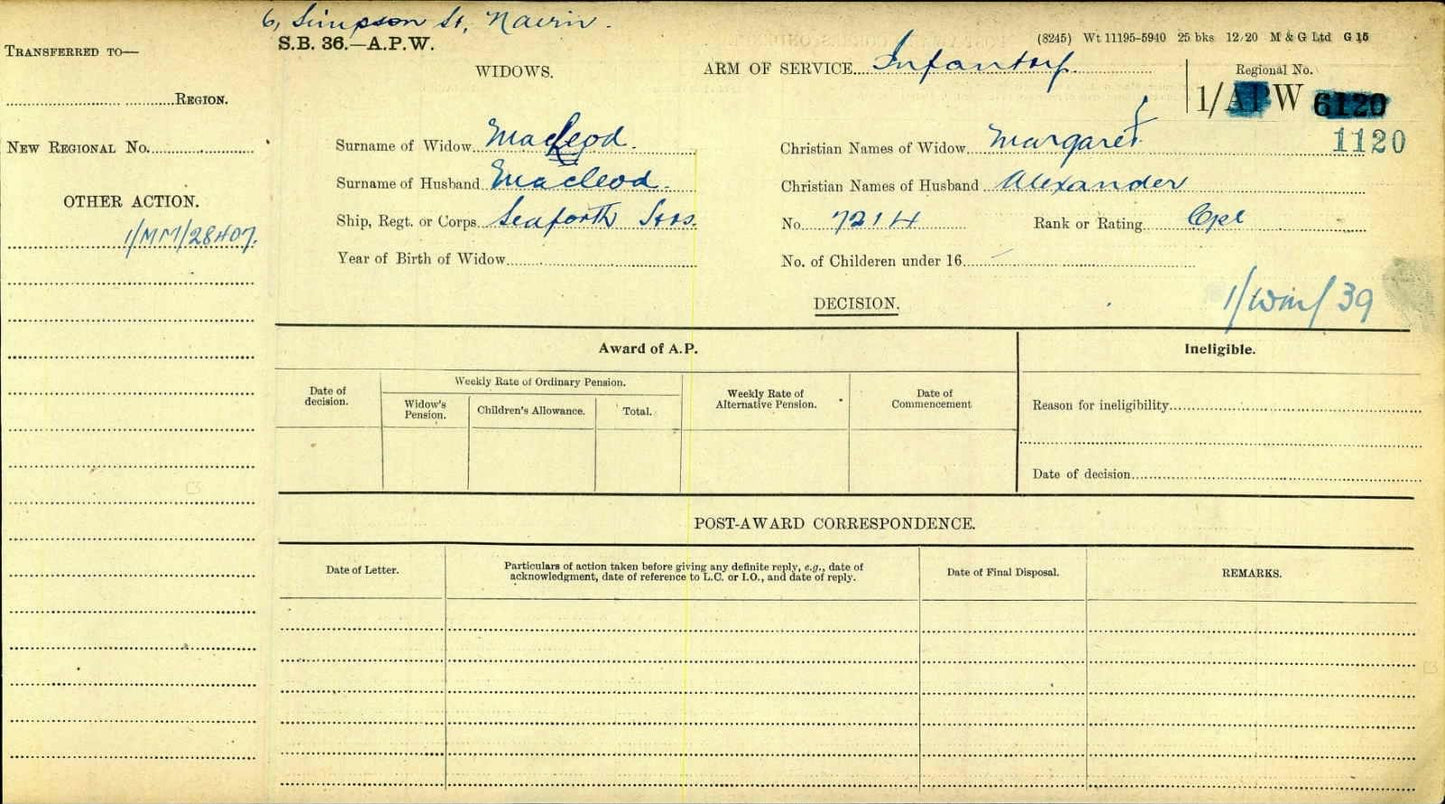 6, Simpson St, Nairn.
S.B. 36.—A.P.W.
(8245) Wt 11195-5940 25 bks 12/20 M & G Ltd G 15
TRANSFERRED TO—
REGION.
NEW REGIONAL NO.
OTHER ACTION.
1/MM/28407.
WIDOWS.
ARM OF SERVICE Infantry
Regional No.
1/APW 6120
1120
Surname of Widow MacLeod.
Christian Names of Widow Margaret
Surname of Husband Macleod.
Christian Names of Husband Alexander
Ship, Regt. or Corps Seaforth Hrs.
No. 7214
Rank or Rating Cpl
Year of Birth of Widow
No. of Childeren under 16
DECISION.
39
Award of A.P.
Ineligible.
Date of decision.
Weekly Rate of Ordinary Pension.
Widow's Pension.
Children's Allowance.
Total.
Weekly Rate of Alternative Pension.
Date of Commencement
Reason for ineligibility
Date of decision
POST-AWARD CORRESPONDENCE.
Date of Letter.
Particulars of action taken before giving any definite reply, e.g., date of
acknowledgment, date of reference to L.C. or I.O., and date of reply.
Date of Final Disposal.
REMARKS.